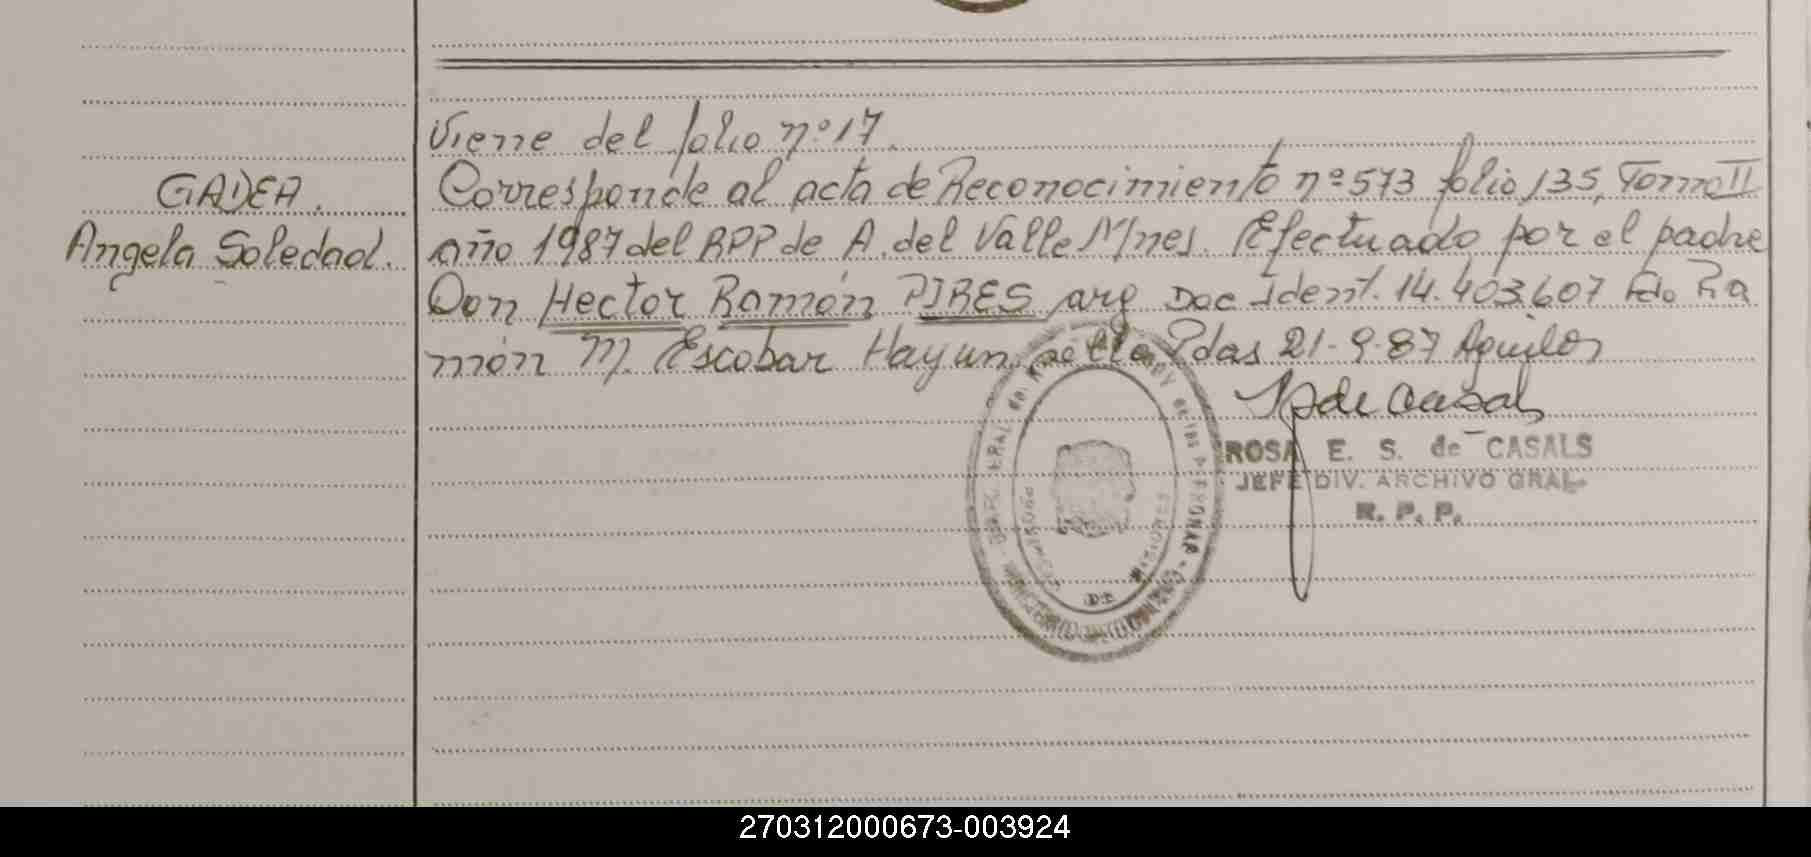 Viene del folio nº 17.
GADEA.
Angela Soledad.
Corresponde al acta de Reconocimiento nº 573 folio 135, Tomo II
año 1987 del RPP de A. del Valle Mnes. Efectuado por el padre
Don Hector Ramón PIRES arg Doc Ident. 14.403.607 Fdo Ra
món M. Escobar Hayun, sello Pdas 21-9-87 Aguilar
ROSA E. S. de CASALS
JEFE DIV. ARCHIVO GRAL.
R. P. P.
PROVINCIA DE MISIONES
270312000673-003924